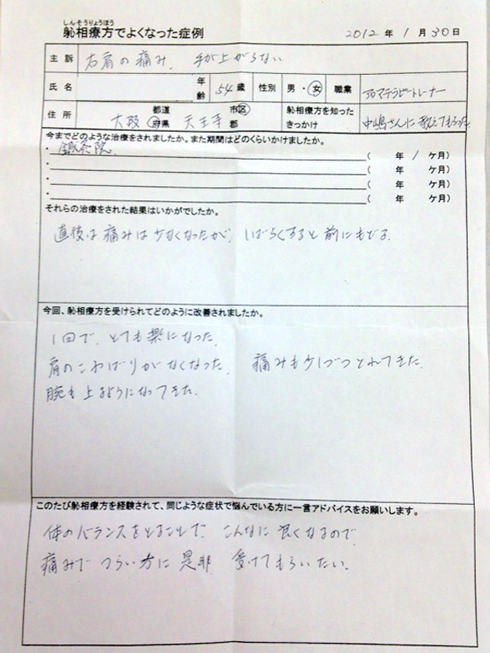 しんそうりょうほう
躰相療方でよくなった症例 2012年 1月 30日
主訴 右肩の痛み. 手が上がらない
氏名 年齢 54歳 性別 男・女 職業 アロマテラピートレーナー
住所 大阪 都道府県 天王寺 市区郡 躰相療方を知ったきっかけ 中嶋さんに教えてもらった
今までどのような治療をされましたか。また期間はどのくらいかけましたか。
・鍼灸院 ( 年 1 ケ月)
・ ( 年 ケ月)
・ ( 年 ケ月)
・ ( 年 ケ月)
それらの治療をされた結果はいかがでしたか。
直後は痛みは少なくなったが、しばらくすると前にもどる.
今回、躰相療方を受けられてどのように改善されましたか。
1回で、とても楽になった.
肩のこわばりがなくなった. 痛みも少しづつとれてきた.
腕も上るようになってきた.
このたび躰相療方を経験されて、同じような症状で悩んでいる方に一言アドバイスをお願いします。
体のバランスをとることで、こんなに良くなるので、
痛みでつらい方に是非 受けてもらいたい.